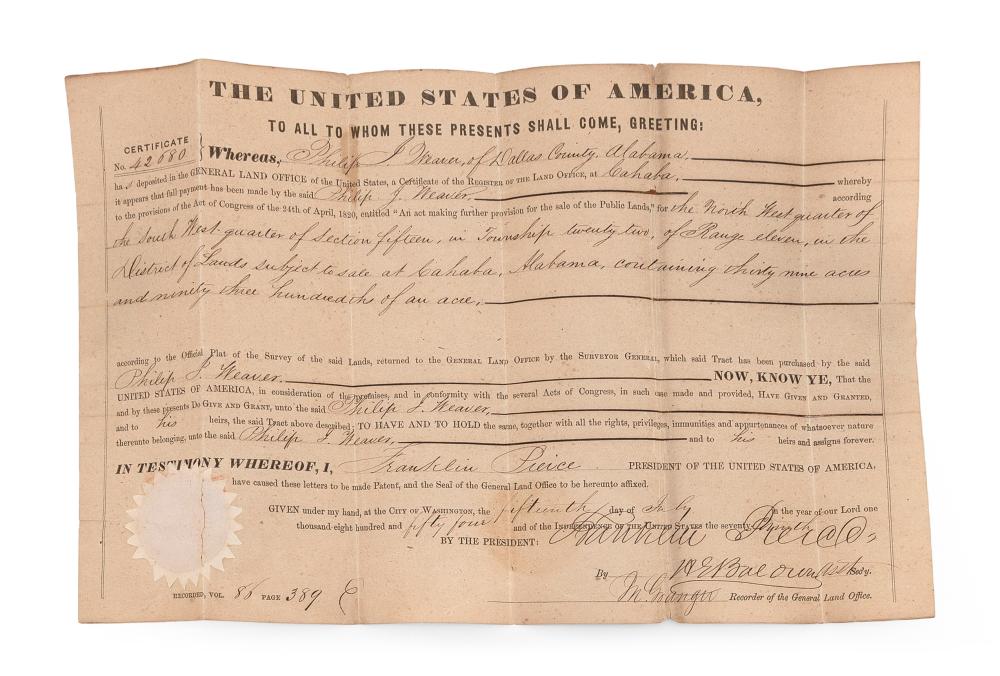 THE UNITED STATES OF AMERICA,
TO ALL TO WHOM THESE PRESENTS SHALL COME, GREETING:
CERTIFICATE
No. 42080
Whereas, Philip J Weaver, of Dallas County, Alabama
ha s deposited in the GENERAL LAND OFFICE of the United States, a Certificate of the REGISTER OF THE LAND OFFICE, at Cahaba, whereby
it appears that full payment has been made by the said Philip J. Weaver according
to the provisions of the Act of Congress of the 24th of April, 1820, entitled "An act making further provision for the sale of the Public Lands," for the North West quarter of
the South West quarter of Section fifteen, in Township twenty two, of Range eleven, in the
District of Lands subject to sale at Cahaba, Alabama, containing thirty nine acres
and ninety three hundredths of an acre,
according to the Official Plat of the Survey of the said Lands, returned to the GENERAL LAND OFFICE by the SURVEYOR GENERAL, which said Tract has been purchased by the said
Philip J. Weaver NOW, KNOW YE, That the
UNITED STATES OF AMERICA, in consideration of the premises, and in conformity with the several Acts of Congress, in such case made and provided, HAVE GIVEN AND GRANTED,
and by these presents DO GIVE AND GRANT, unto the said Philip J. Weaver,
and to his heirs, the said Tract above described; TO HAVE AND TO HOLD the same, together with all the rights, privileges, immunities and appurtenances of whatsoever nature
thereunto belonging, unto the said Philip J. Weaver, and to his heirs and assigns forever.
IN TESTIMONY WHEREOF, I, Franklin Pierce PRESIDENT OF THE UNITED STATES OF AMERICA,
have caused these letters to be made Patent, and the Seal of the General Land Office to be hereunto affixed.
GIVEN under my hand, at the CITY OF WASHINGTON, the fifteenth day of July in the year of our Lord one
thousand eight hundred and fifty four and of the INDEPENDENCE OF THE UNITED STATES the seventy
BY THE PRESIDENT: Franklin Pierce
By H E Baldwin Asst Secy.
RECORDED, VOL. 86 PAGE 389 J N Granger Recorder of the General Land Office.